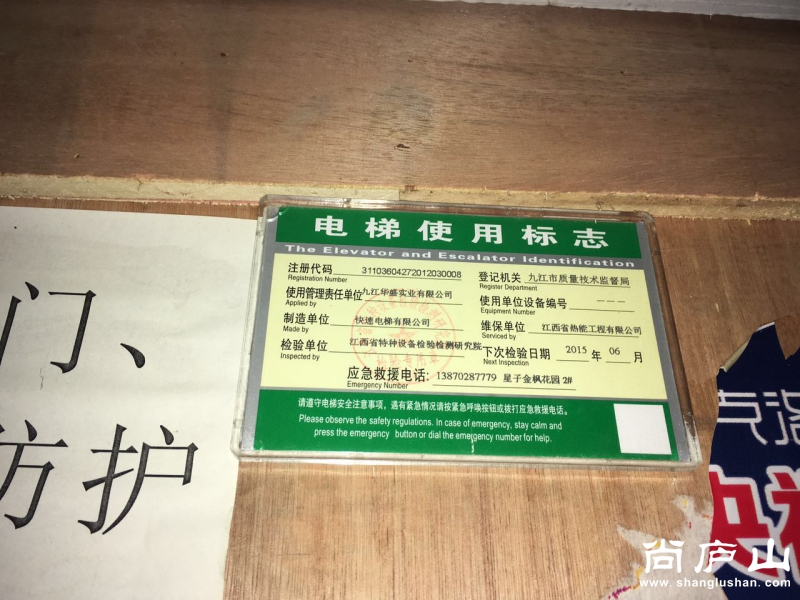 电梯使用标志
The Elevator and Escalator Identification
注册代码 31103604272012030008 登记机关 九江市质量技术监督局
Registration Number Register Department
使用管理责任单位 九江华盛实业有限公司 使用单位设备编号 ---
Applied by Equipment Number
制造单位 快速电梯有限公司 维保单位 江西省热能工程有限公司
Made by Serviced by
检验单位 江西省特种设备检验检测研究院 下次检验日期 2015 年 06 月
Inspected by Next Inspection
应急救援电话: 13870287779 星子金枫花园 2#
Emergency Number
请遵守电梯安全注意事项,遇有紧急情况请按紧急呼唤按钮或拨打应急救援电话。
Please observe the safety regulations. In case of emergency, stay calm and
press the emergency button or dial the emergency number for help.
门、
防护
尚庐山
www.shanglushan.com